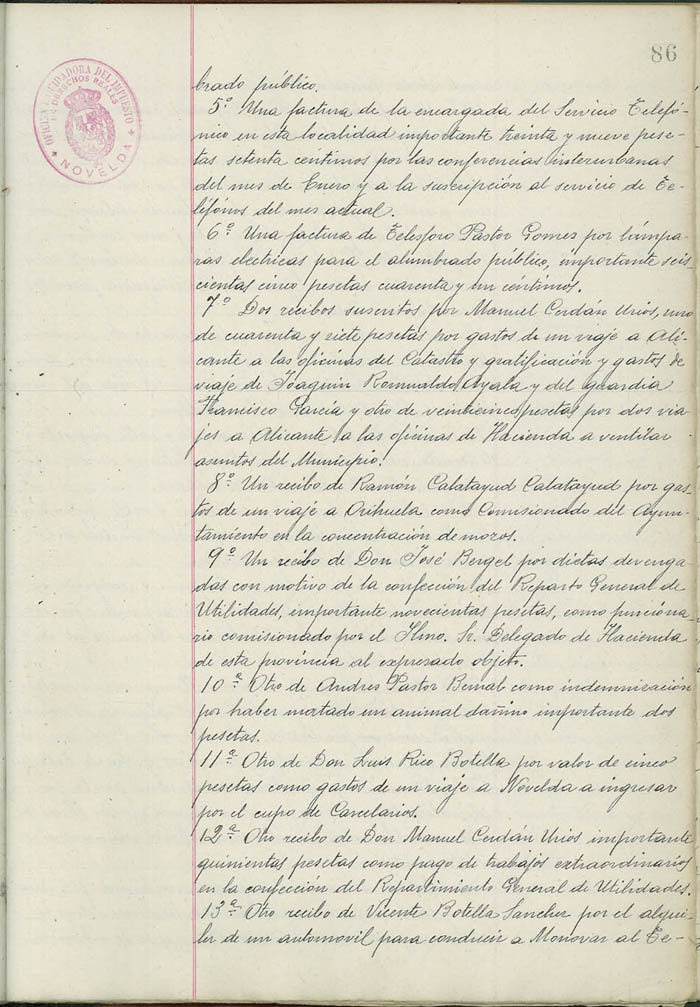 86
OFICINA LIQUIDADORA DEL IMPUESTO
DE DERECHOS REALES
* NOVELDA *
brado público.
5º Una factura de la encargada del Servicio Telefó-
nico en esta localidad importante treinta y nueve pese-
tas setenta céntimos por las conferencias interurbanas
del mes de Enero y a la suscripción al servicio de Te-
léfónos del mes actual.
6º Una factura de Telesforo Pastor Gomez por lámpa-
ras electricas para el alumbrado público, importante seis-
cientas cinco pesetas cuarenta y un céntimos.
7º Dos recibos suscritos por Manuel Cerdán Uriós, uno
de cuarenta y siete pesetas por gastos de un viaje a Ali-
cante a las oficinas del Catastro y gratificación y gastos de
viaje de Joaquin Romualdo Ayala y del guardia
Francisco García y otro de veinticinco pesetas por dos via-
jes a Alicante a las oficinas de Hacienda a ventilar
asuntos del Municipio.
8º Un recibo de Ramón Calatayud Calatayud por gas-
tos de un viaje a Orihuela como Comisionado del Ayun-
tamiento en la concentración de mozos.
9º Un recibo de Don José Bergel por dietas devenga-
das con motivo de la confección del Reparto General de
Utilidades, importante novecientas pesetas, como funciona-
rio comisionado por el Ilmo. Sr. Delegado de Hacienda
de esta provincia al expresado objeto.
10ª Otro de Andres Pastor Bernal como indemnización
por haber matado un animal dañino importante dos
pesetas.
11ª Otro de Don Luis Rico Botella por valor de cinco
pesetas como gastos de un viaje a Novelda a ingresar
por el cupo de Carcelarios.
12ª Otro recibo de Don Manuel Cerdán Uriós importante
quinientas pesetas como pago de trabajos extraordinarios
en la confección del Repartimiento General de Utilidades.
13ª Otro recibo de Vicente Botella Sanchez por el alqui-
ler de un automovil para conducir a Monovar al Te-